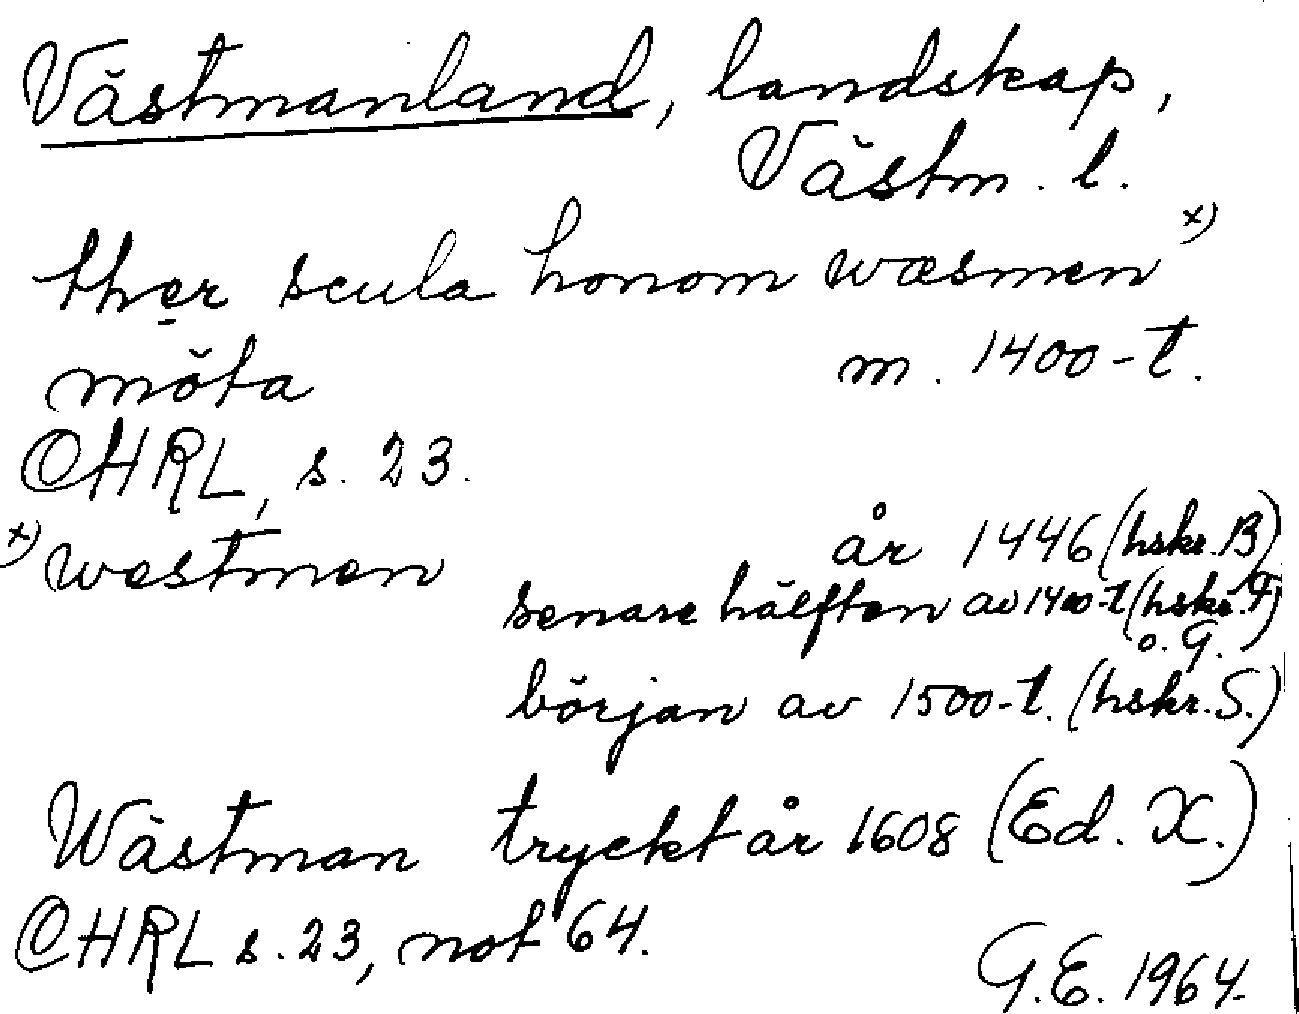 Västmanland, landskap,
Västm. l.
ther scula honom wæsmen x)
möta m. 1400-t.
CHRL, s. 23.
x) westmen år 1446 (hskr. B)
senare hälften av 1400-t (hskr. F)
o. G.
början av 1500-t. (hskr. S.)
Wästman tryckt år 1608 (Ed. X.)
CHRL s. 23, not 64.
G.E. 1964.